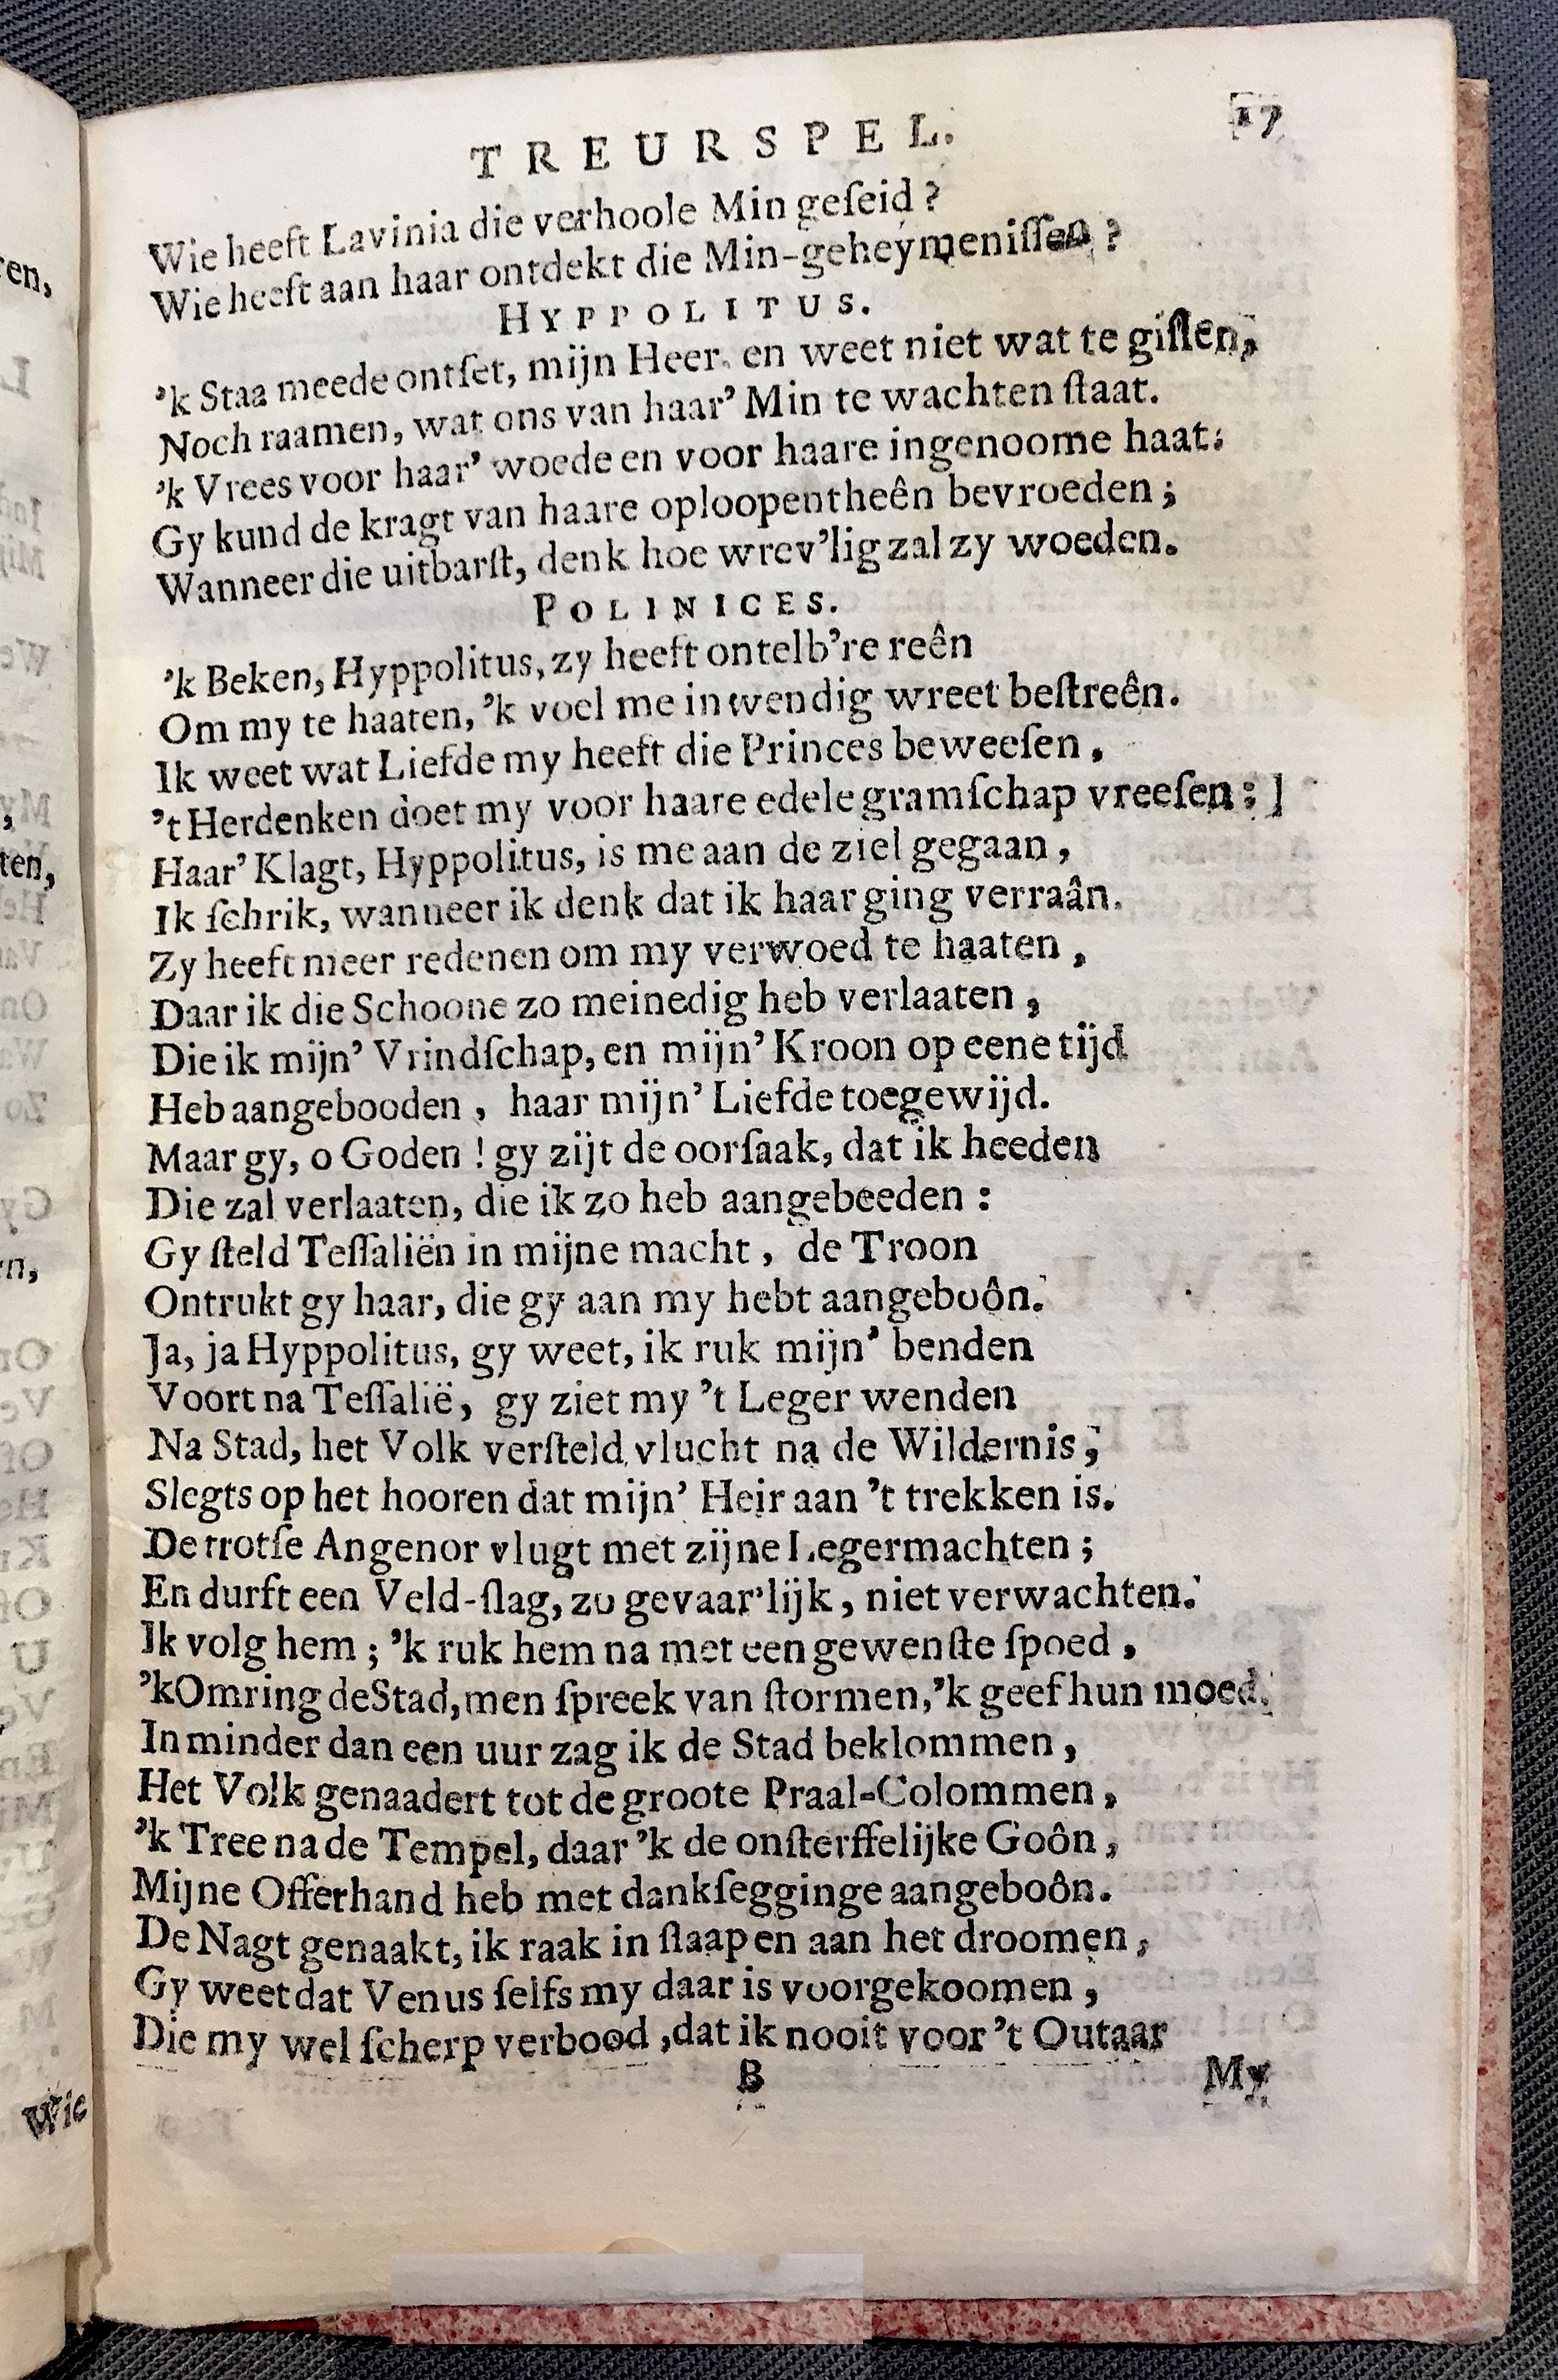 TREURSPEL. 17
Wie heeft Lavinia die verhoole Min geſeid?
Wie heeft aan haar ontdekt die Min-geheymeniſſen?
HYPPOLITUS.
'k Staa meede ontſet, mijn Heer. en weet niet wat te giſſen,
Noch raamen, wat ons van haar' Min te wachten ſtaat.
'k Vrees voor haar' woede en voor haare ingenoome haat:
Gy kund de kragt van haare oploopentheên bevroeden;
Wanneer die uitbarſt, denk hoe wrev'lig zal zy woeden.
POLINICES.
'k Beken, Hyppolitus, zy heeft ontelb're reên
Om my te haaten, 'k voel me inwendig wreet beſtreên.
Ik weet wat Liefde my heeft die Princes beweeſen,
't Herdenken doet my voor haare edele gramſchap vreeſen:
Haar' Klagt, Hyppolitus, is me aan de ziel gegaan,
Ik ſchrik, wanneer ik denk dat ik haar ging verraân.
Zy heeft meer redenen om my verwoed te haaten,
Daar ik die Schoone zo meinedig heb verlaaten,
Die ik mijn' Vrindſchap, en mijn' Kroon op eene tijd
Heb aangebooden, haar mijn' Liefde toegewijd.
Maar gy, o Goden! gy zijt de oorſaak, dat ik heeden
Die zal verlaaten, die ik zo heb aangebeeden:
Gy ſteld Teſſaliën in mijne macht, de Troon
Ontrukt gy haar, die gy aan my hebt aangeboôn.
Ja, ja Hyppolitus, gy weet, ik ruk mijn' benden
Voort na Teſſalië, gy ziet my 't Leger wenden
Na Stad, het Volk verſteld vlucht na de Wildernis,
Slegts op het hooren dat mijn' Heir aan 't trekken is.
De trotſe Angenor vlugt met zijne Legermachten;
En durft een Veld-ſlag, zo gevaar'lijk, niet verwachten.
Ik volg hem; 'k ruk hem na met een gewenſte ſpoed,
'k Omring de Stad, men ſpreek van ſtormen, 'k geef hun moed.
In minder dan een uur zag ik de Stad beklommen,
Het Volk genaadert tot de groote Praal-Colommen,
'k Tree na de Tempel, daar 'k de onſterffelijke Goôn,
Mijne Offerhand heb met dankſegginge aangeboôn.
De Nagt genaakt, ik raak in ſlaap en aan het droomen,
Gy weet dat Venus ſelfs my daar is voorgekoomen,
Die my wel ſcherp verbood, dat ik nooit voor 't Outaar
B My
ren,
ten,
Wie